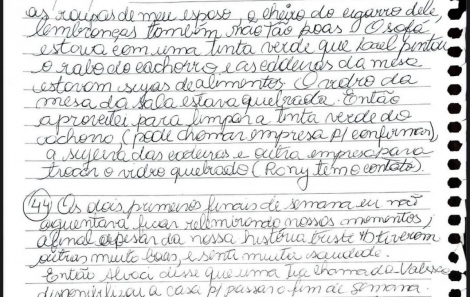 as roupas de meu esposo, o cheiro do cigarro dele,
lembranças também não tão boas. O sofá
estava com uma tinta verde que Kauel pintou
o rabo do cachorro e as cadeiras da mesa
estavam sujas de alimentos. O vidro da
mesa da sala estava quebrada. Então
aproveitei para limpar a tinta verde do
cachorro, (pode chamar empresa p/ confirmar),
a sujeira das cadeiras e outra empresa para
trocar o vidro quebrado (Rony tem o contato).
44 Os dois primeiros finais de semana eu não
aguentava ficar relembrando nossos momentos,
afinal apesar da nossa história triste tiveram
outras muito boas, e senti muita saudade.
Então disse que uma tia chamada
disponibilizou a casa p/ passar o fim de semana.